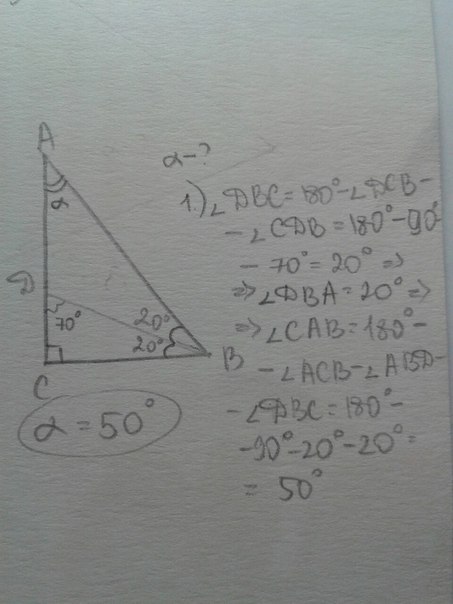 A
α
D
70°
20°
20°
B
C
α = 50°
α - ?
1.) ∠DBC = 180° - ∠DCB -
- ∠CDB = 180° - 90°
- 70° = 20° =>
=> ∠DBA = 20° =>
=> ∠CAB = 180° -
- ∠ACB - ∠ABD -
- ∠DBC = 180° -
- 90° - 20° - 20° =
= 50°